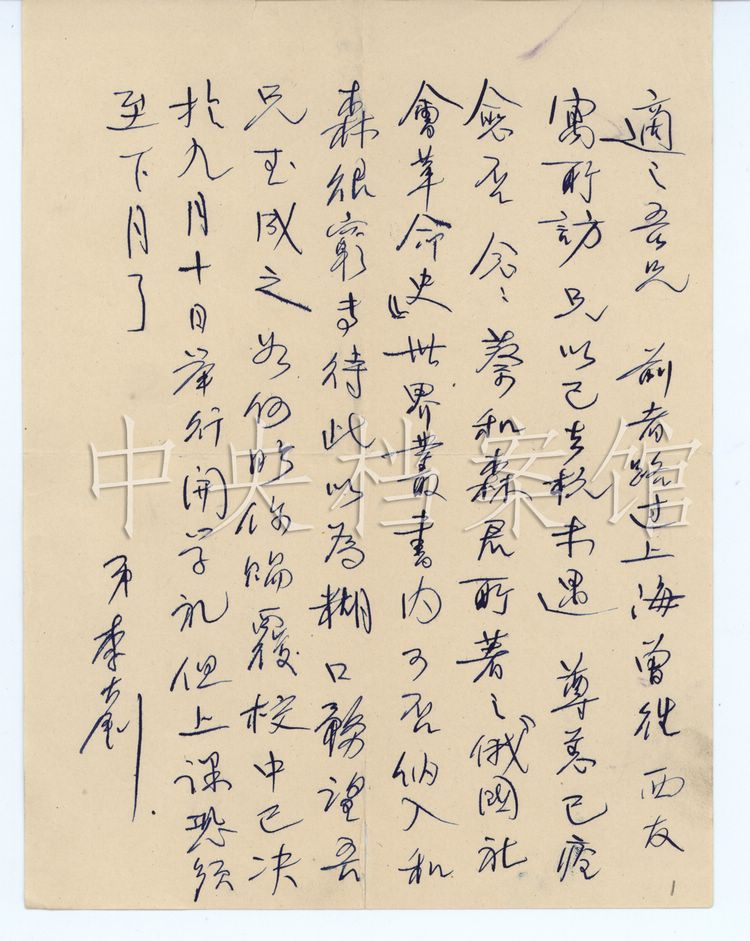 適之吾兄 前者路过上海曾往西友
寓所訪兄以已去杭未遇 尊恙已痊
愈否 念念 蔡和森君所著之『俄国社
會革命史』世界叢書内可否納入和
森很窮專待此以為糊口務望吾
兄玉成之如何盼你賜覆校中已决
於九月十日举行開学礼但上课恐须
至下月了
弟李大釗
1
中央档案馆